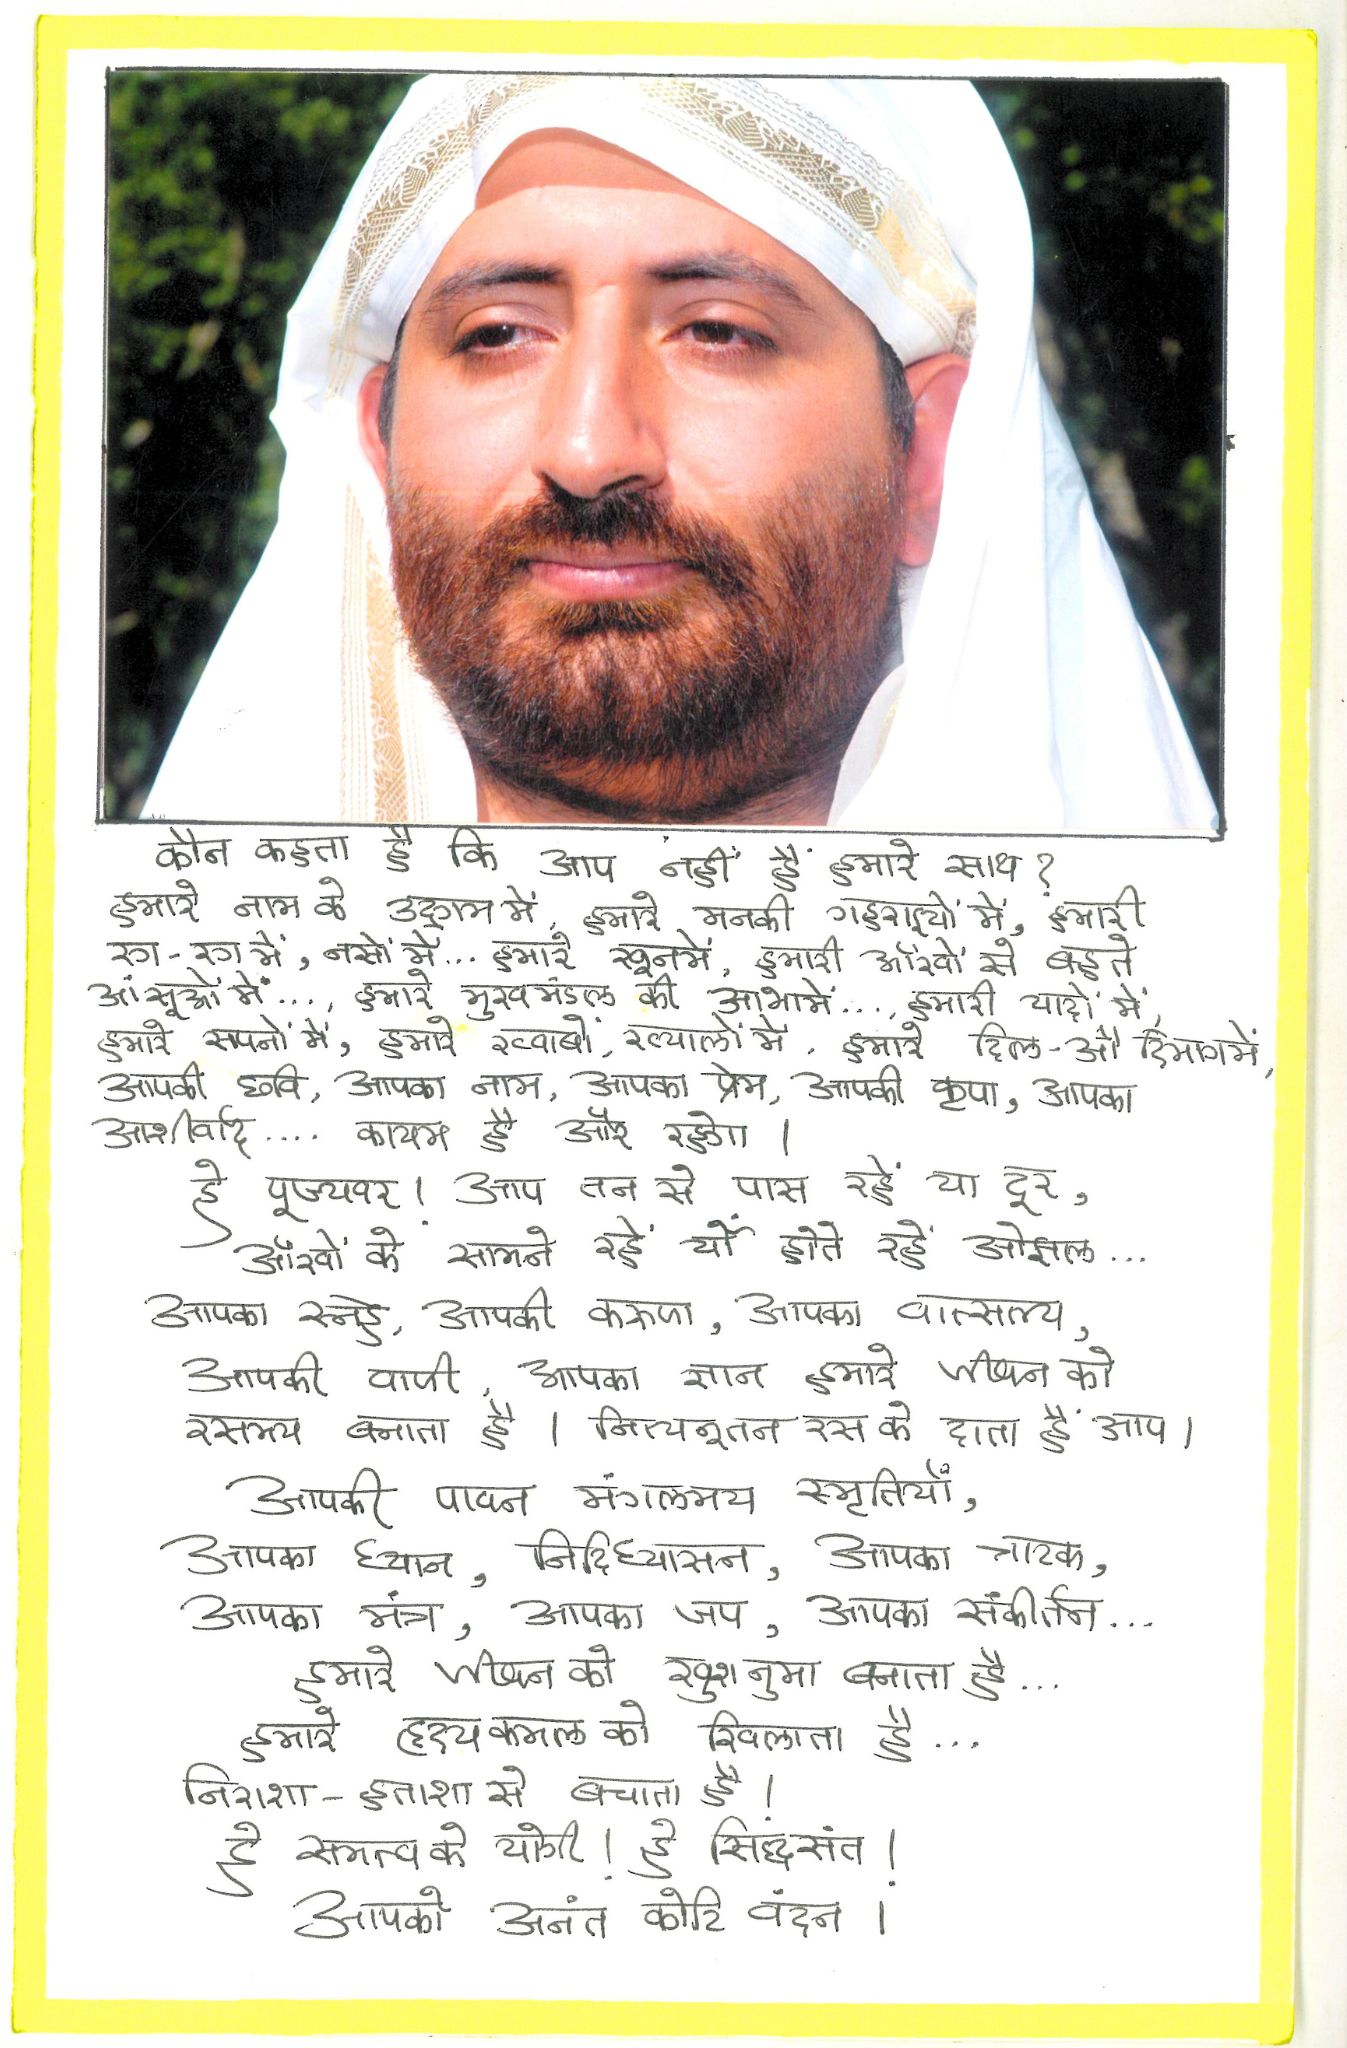 कौन कहता है कि आप नहीं हैं हमारे साथ?
हमारे नाम के उद्गम में, हमारे मनकी गहराइयों में, हमारी
रग-रग में, नसों में... हमारे खूनमें, हमारी आँखों से बहते
आंसूओं में...., हमारे मुखमंडल की आभामें..., हमारी यादों में,
हमारे सपनों में, हमारे ख्वाबों, ख्यालों में, हमारे दिल-औ दिमागमें,
आपकी छवि, आपका नाम, आपका प्रेम, आपकी कृपा, आपका
आशीर्वाद.... कायम है और रहेगा ।
हे पूज्यवर! आप तन से पास रहें या दूर,
आँखों के सामने रहें यों होते रहें ओझल...
आपका स्नेह, आपकी करुणा, आपका वात्सल्य,
आपकी वाणी, आपका ज्ञान हमारे जीवन को
रसमय बनाता है । नित्यनूतन रस के दाता हैं आप ।
आपकी पावन मंगलमय स्मृतियाँ,
आपका ध्यान, निदिध्यासन, आपका त्राटक,
आपका मंत्र, आपका जप, आपका संकीर्तन...
हमारे जीवन को खुशनुमा बनाता है...
हमारे हृदयकमल को खिलाता है...
निराशा-हताशा से बचाता है ।
हे समत्व के योगी! हे सिद्धसंत!
आपको अनंत कोटि वंदन ।